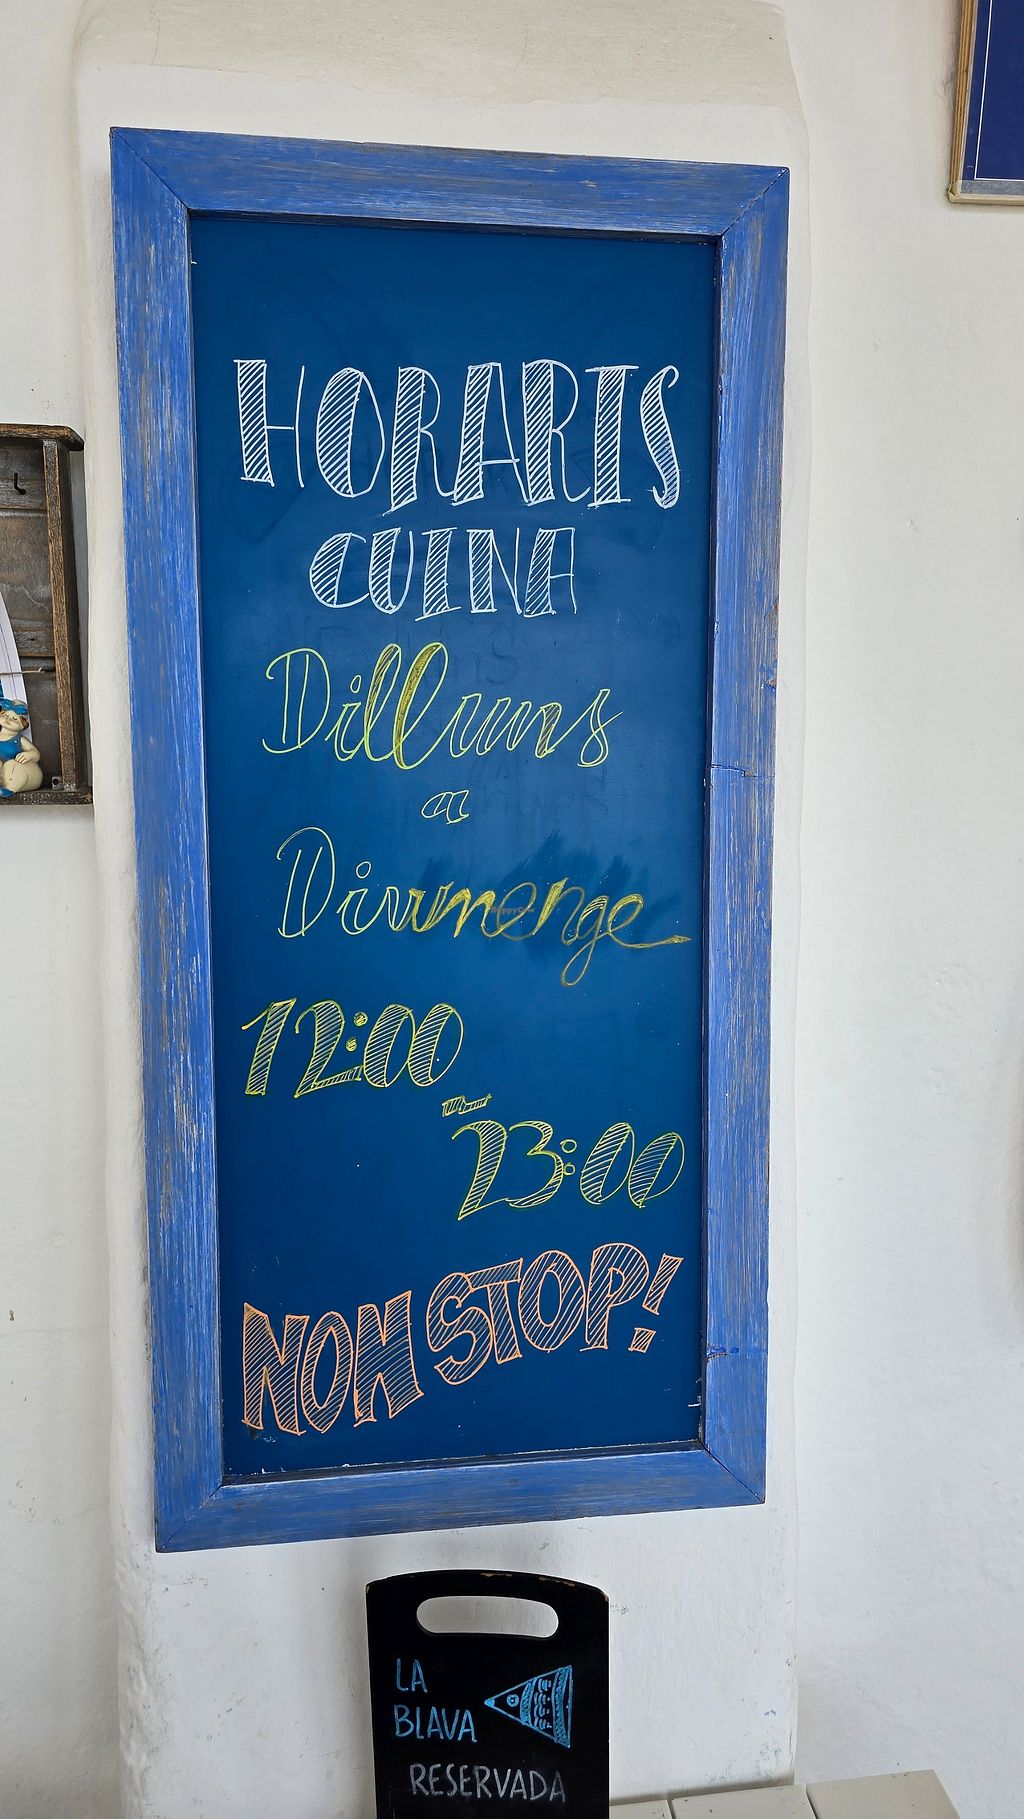 HORARIS
CUINA
Dilluns
a
Diumenge
12:00
-
23:00
NON STOP!
LA
BLAVA
RESERVADA
HappyCow